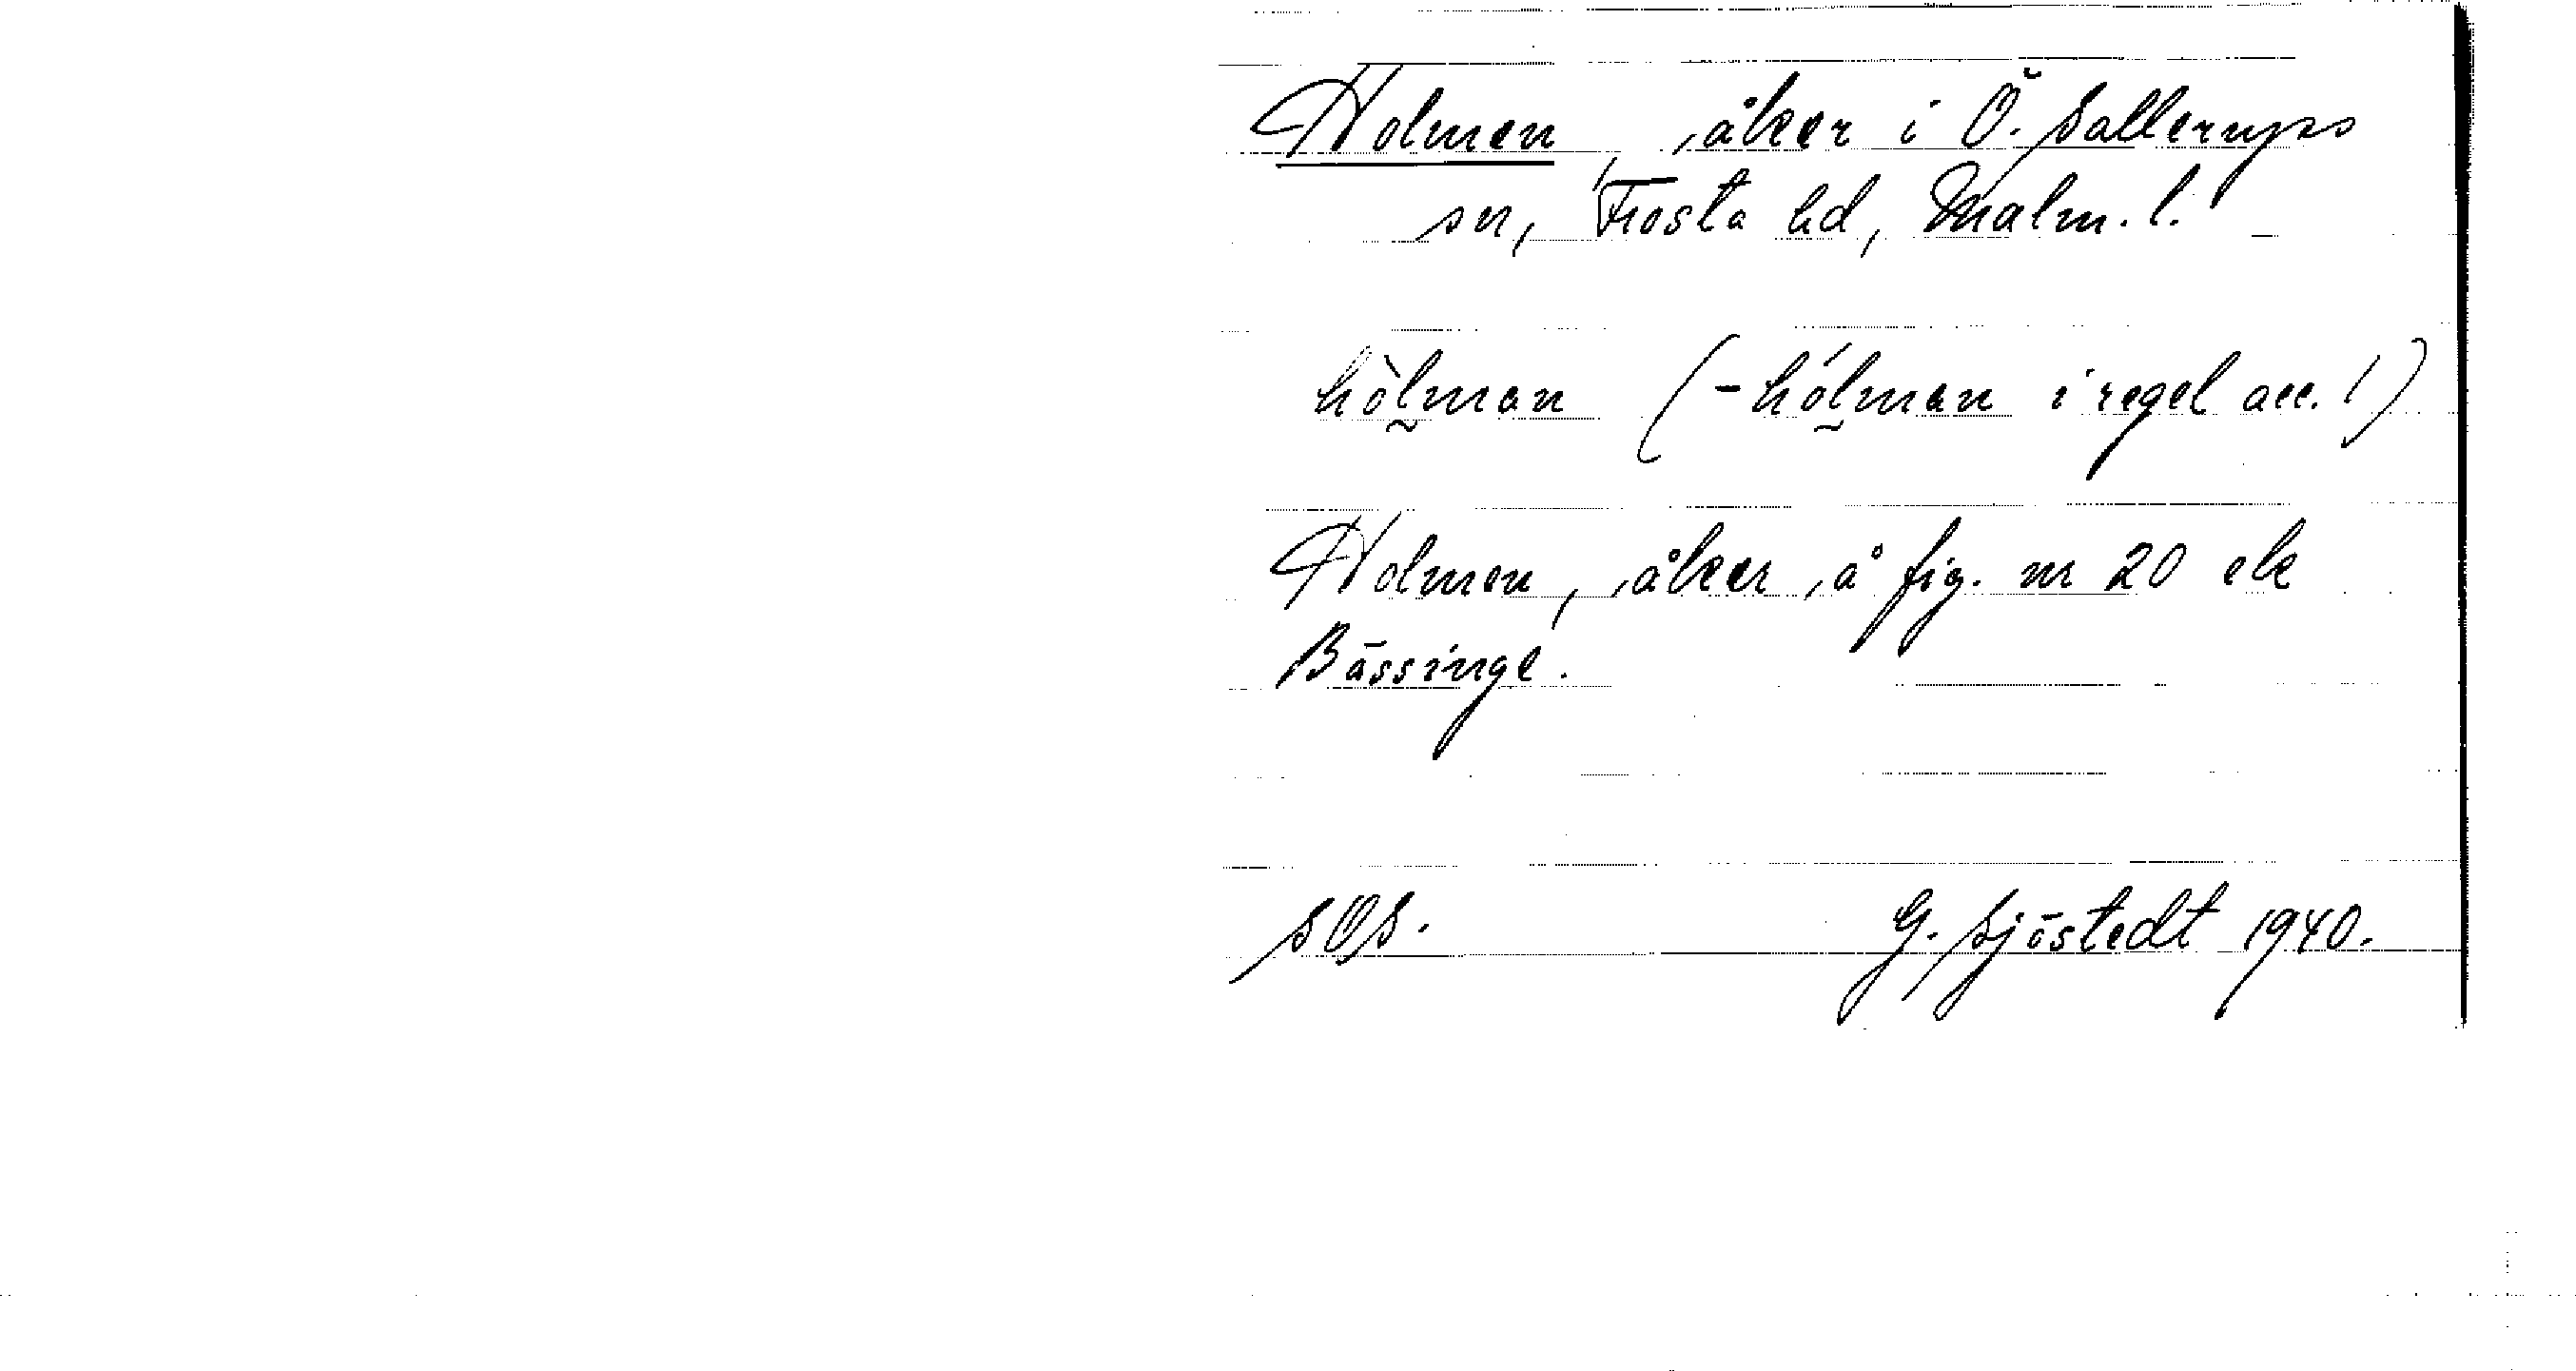 Holmen, åker i Ö. Sallerups
sn, Frosta hd, Malm. l.
hòlman (-hólman i regel acc. 1)
Holmen, åker å fig. nr 20 ek
Bässinge.
SOS.
G. Sjöstedt 1940.